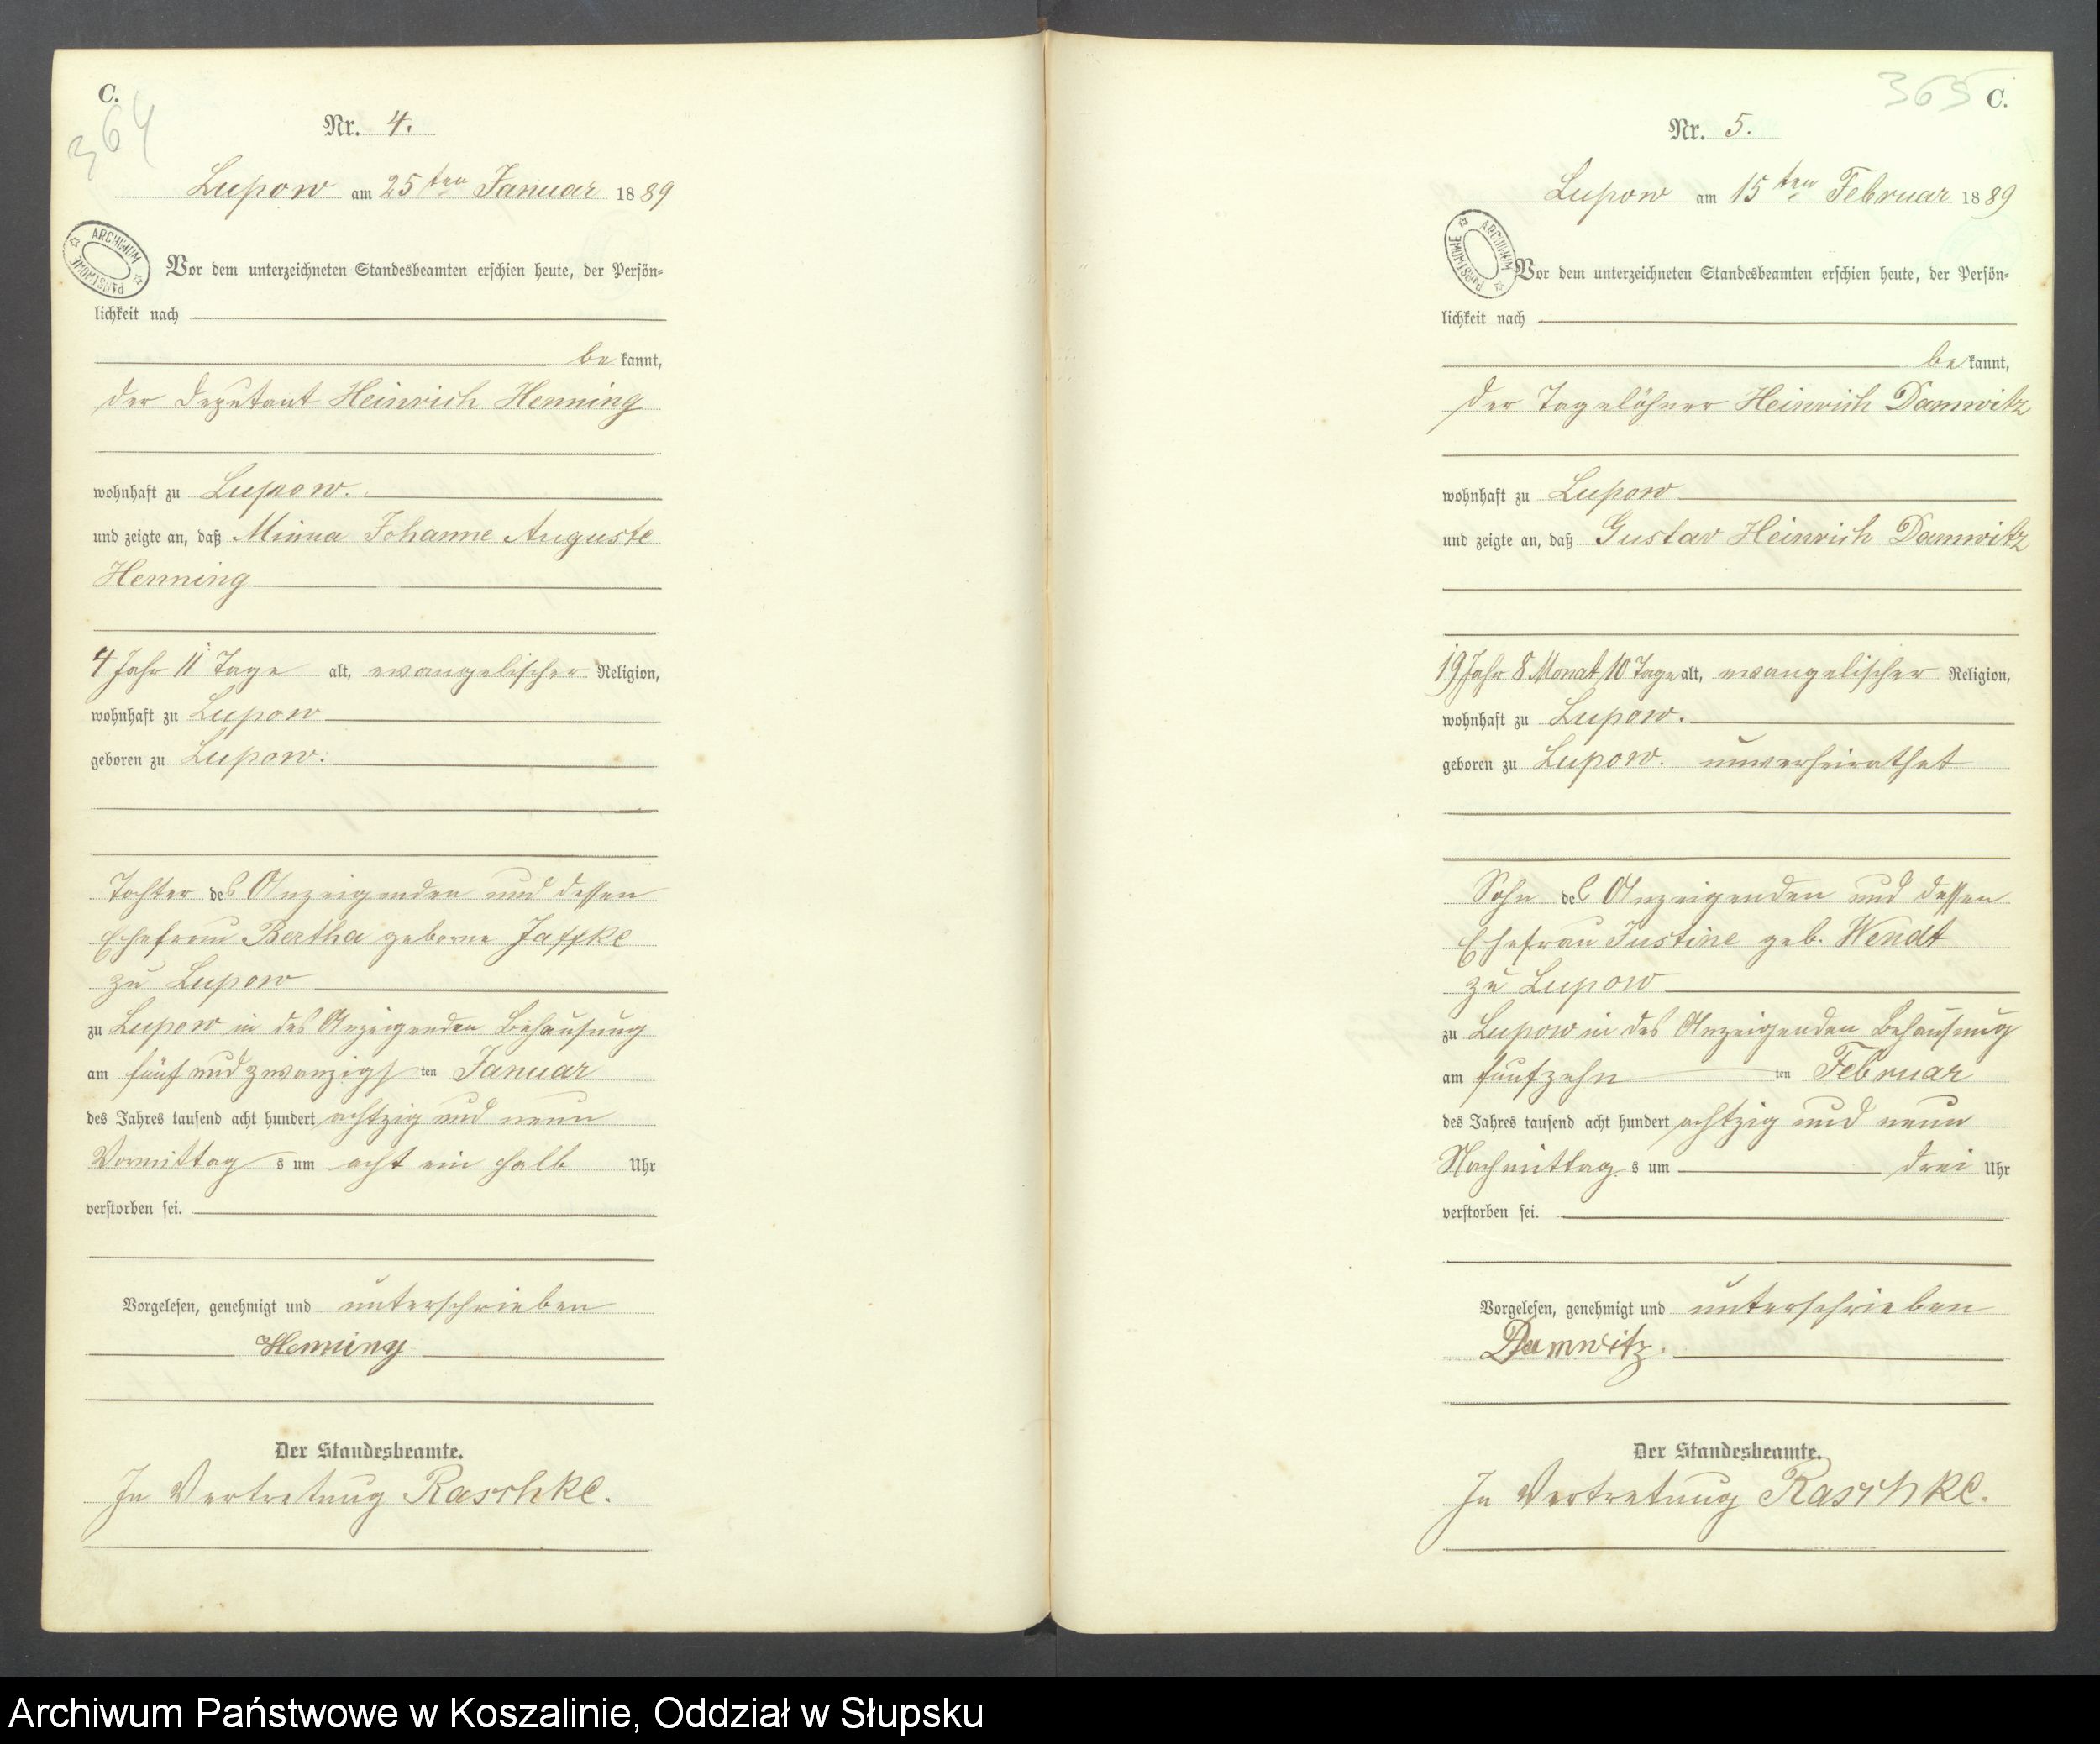 C.
364
Nr. 4.
Lupow am 25ten Januar 1889
ARCHIWUM PAŃSTWOWE
Vor dem unterzeichneten Standesbeamten erschien heute, der Persön-
lichkeit nach
be kannt,
der Deputant Heinrich Henning
wohnhaft zu Lupow.
und zeigte an, daß Minna Johanne Auguste
Henning
4 Jahr 11 Tage alt, evangelischer Religion,
wohnhaft zu Lupow
geboren zu Lupow.
Tochter des Anzeigenden und dessen
Ehefrau Bertha geborne Jaffke
zu Lupow
zu Lupow in des Anzeigenden Behausung
am fünf und zwanzigsten Januar
des Jahres tausend acht hundert achtzig und neun
Vormittag s um acht ein halb Uhr
verstorben sei.
Vorgelesen, genehmigt und unterschrieben
Henning
Der Standesbeamte.
In Vertretung Raschke.
365 C.
Nr. 5.
Lupow am 15ten Februar 1889
ARCHIWUM PAŃSTWOWE
Vor dem unterzeichneten Standesbeamten erschien heute, der Persön-
lichkeit nach
be kannt,
der Tagelöhner Heinrich Damwitz
wohnhaft zu Lupow
und zeigte an, daß Gustav Heinrich Damwitz
19 Jahr 8 Monat 10 Tage alt, evangelischer Religion,
wohnhaft zu Lupow.
geboren zu Lupow. unverheirathet
Sohn des Anzeigenden und dessen
Ehefrau Justine geb. Wendt
zu Lupow
zu Lupow in des Anzeigenden Behausung
am funfzehn ten Februar
des Jahres tausend acht hundert achtzig und neun
Nachmittag s um drei Uhr
verstorben sei.
Vorgelesen, genehmigt und unterschrieben
Damwitz.
Der Standesbeamte.
In Vertretung Raschke.
Archiwum Państwowe w Koszalinie, Oddział w Słupsku